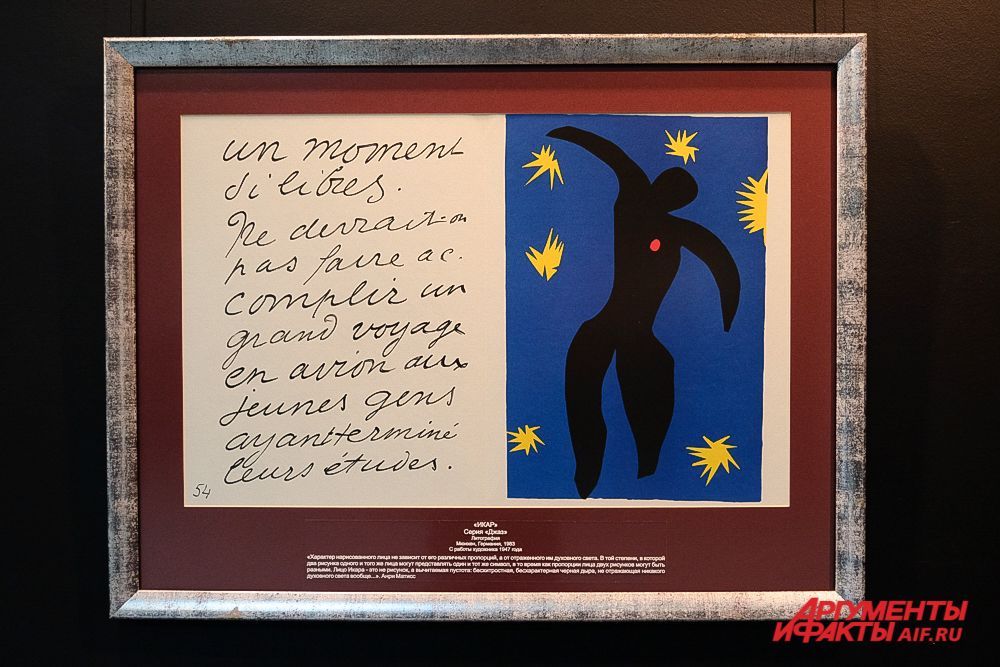 un moment
si libres.
Ne devrait-on
pas faire ac-
complir un
grand voyage
en avion aux
jeunes gens
ayant terminé
leurs études.
54
«ИКАР»
Серия «Джаз»
Литография
Мюнхен, Германия, 1983
С работы художника 1947 года
«Характер нарисованного лица не зависит от его различных пропорций, а от отраженного им духовного света. В той степени, в которой
два рисунка одного и того же лица могут представлять один и тот же символ, в то время как пропорции лица двух рисунков могут быть
разными. Лицо Икара - это не рисунок, а вычитаемая пустота: бесхитростная, бесхарактерная черная дыра, не отражающая никакого
духовного света вообще...». Анри Матисс
АРГУМЕНТЫ
И ФАКТЫ AIF.RU